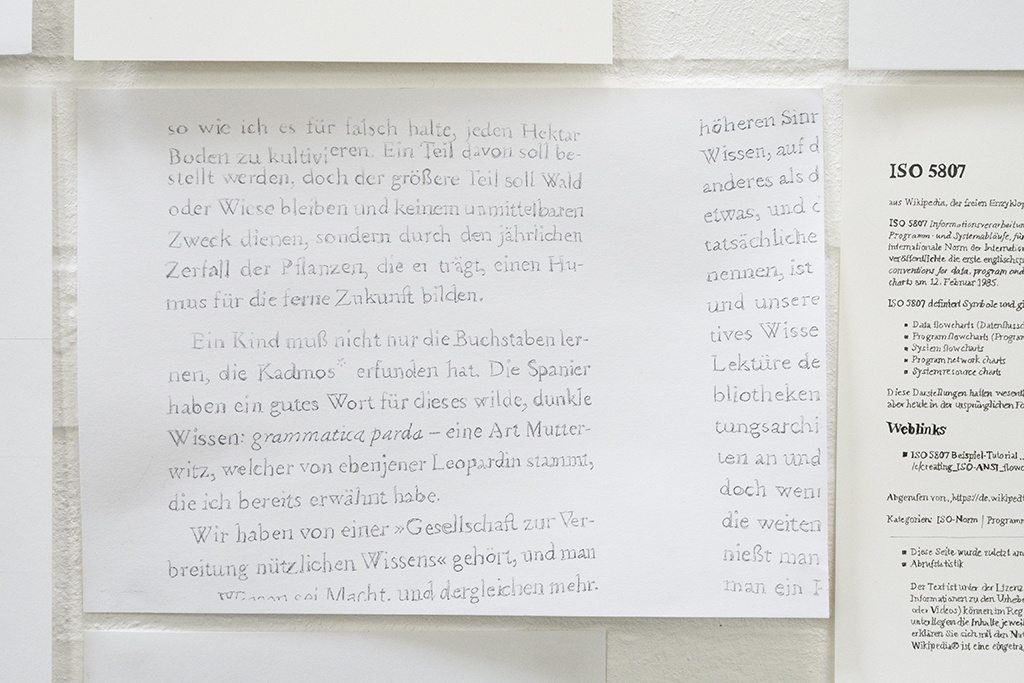 so wie ich es für falsch halte, jeden Hektar
Boden zu kultivieren. Ein Teil davon soll be-
stellt werden, doch der größere Teil soll Wald
oder Wiese bleiben und keinem unmittelbaren
Zweck dienen, sondern durch den jährlichen
Zerfall der Pflanzen, die er trägt, einen Hu-
mus für die ferne Zukunft bilden.
Ein Kind muß nicht nur die Buchstaben ler-
nen, die Kadmos* erfunden hat. Die Spanier
haben ein gutes Wort für dieses wilde, dunkle
Wissen: grammatica parda – eine Art Mutter-
witz, welcher von ebenjener Leopardin stammt,
die ich bereits erwähnt habe.
Wir haben von einer »Gesellschaft zur Ver-
breitung nützlichen Wissens« gehört, und man
Wissen sei Macht, und dergleichen mehr.
höheren Sinn
Wissen, auf d
anderes als d
etwas, und
tatsächliche
nennen, ist
und unsere
tives Wisse
Lektüre de
bliotheken
tungsarchi
ten an und
doch weni
die weiten
nießt man
man ein
ISO 5807
aus Wikipedia, der freien Enzyklop
ISO 5807 Informationsverarbeitun
Programm- und Systemabläufe, fü
Internationale Norm der Internation
veröffentlichte die erste englischsp
conventions for data, program and
charts am 12. Februar 1985.
ISO 5807 definiert Symbole und gi
▪ Data flowcharts (Datenflussd
▪ Program flowcharts (Program
▪ System flowcharts
▪ Program network charts
▪ System resource charts
Diese Darstellungen hatten wesentl
aber heute in der ursprünglichen Fo
Weblinks
▪ ISO 5807 Beispiel-Tutorial
/c/creating_ISO-ANSI_flowc
Abgerufen von „https://de.wikipedi
Kategorien: ISO-Norm | Programm
▪ Diese Seite wurde zuletzt am
▪ Abrufstatistik
Der Text ist unter der Lizenz
Informationen zu den Urhebe
oder Videos) können im Reg
unterliegen die Inhalte jeweil
erklären Sie sich mit den Nut
Wikipedia® ist eine eingetra